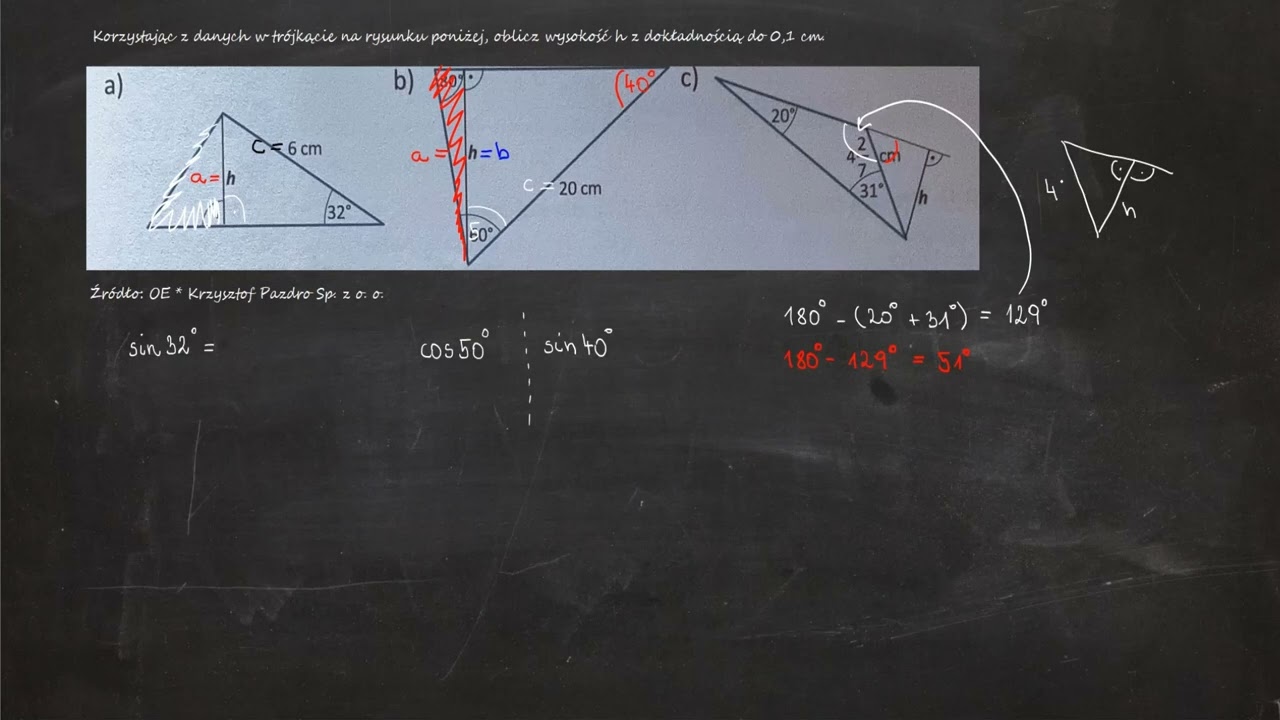 Korzystając z danych w trójkącie na rysunku poniżej, oblicz wysokość h z dokładnością do 0,1 cm.
a)
c = 6 cm
a = h
32°
b)
80°
(40°
a = h = b
c = 20 cm
50°
c)
20°
2 cm
4
7
31°
h
4
h
Źródło: OE * Krzysztof Pazdro Sp. z o. o.
180° - (20° + 31°) = 129°
sin 32° =
cos 50°
sin 40°
180° - 129° = 51°